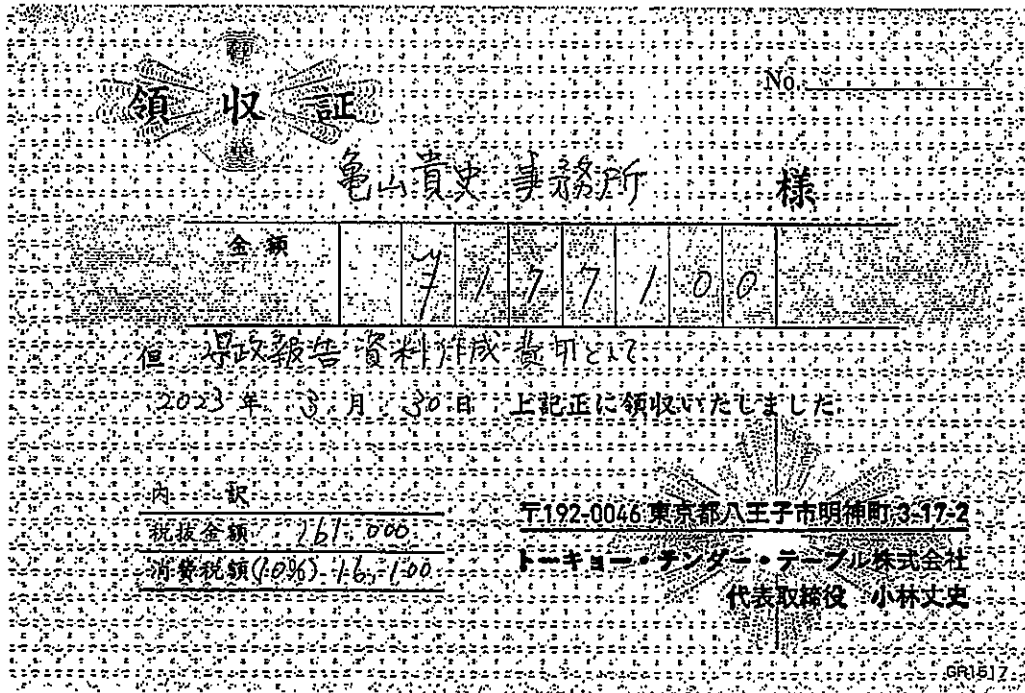 領収証
No.
亀山貴史 事務所 様
金額 ¥177100
但 県政報告資料作成費用として
2023年 3月 30日 上記正に領収いたしました
内訳
税抜金額 161,000
消費税額(10%) 16,100
〒192-0046 東京都八王子市明神町3-17-2
トーキョー・テンダー・テーブル株式会社
代表取締役 小林丈史
GR1517